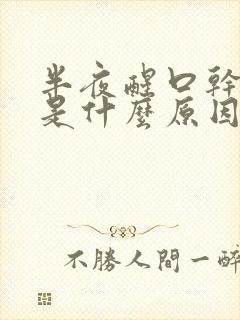 半夜醒口幹
是什麼原因
不勝人間一醉